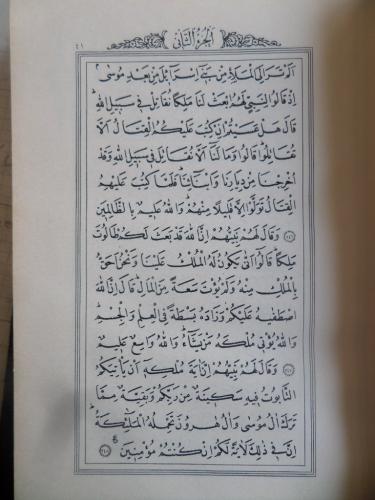 ٤١
الجزء الثاني
الم تر الى الملا من بني اسرائل من بعد موسى
اذ قالوا لنبي لهم ابعث لنا ملكا نقاتل في سبيل الله
قال هل عسيتم ان كتب عليكم القتال الا
تقاتلوا قالوا وما لنا الا نقاتل في سبيل الله وقد
اخرجنا من ديارنا وابنائنا فلما كتب عليهم
القتال تولوا الا قليلا منهم والله عليم بالظالمين
٢٤٦ وقال لهم نبيهم ان الله قد بعث لكم طالوت
ملكا قالوا انى يكون له الملك علينا ونحن احق
بالملك منه ولم يؤت سعة من المال قال ان الله
اصطفيه عليكم وزاده بسطة في العلم والجسم
والله يؤتي ملكه من يشاء والله واسع عليم
٢٤٧ وقال لهم نبيهم ان اية ملكه ان ياتيكم
التابوت فيه سكينة من ربكم وبقية مما
ترك ال موسى وال هرون تحمله الملئكة
ان في ذلك لاية لكم ان كنتم مؤمنين ٢٤٨